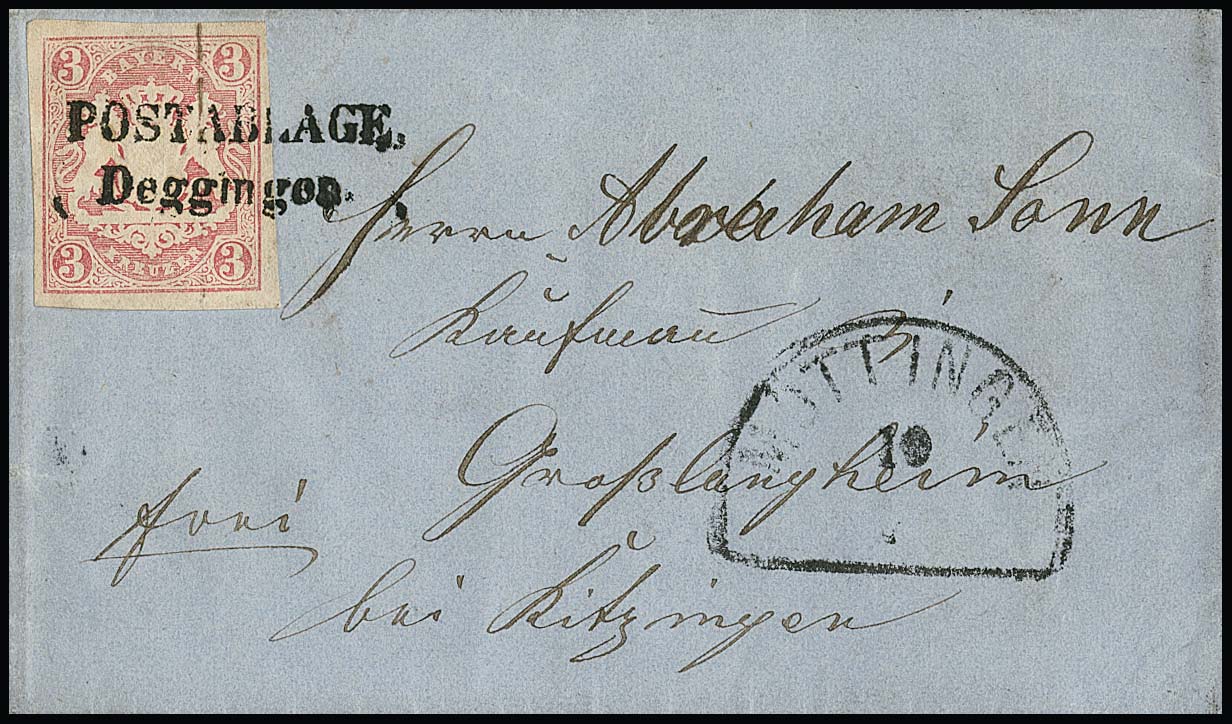 3 BAYERN 3
POSTABLAGE.
Deggingen.
3 KREUZER 3
Herrn Abraham Sonn
Kaufmann
Großlangheim
frei
bei Kitzingen
MÖTTINGEN
10